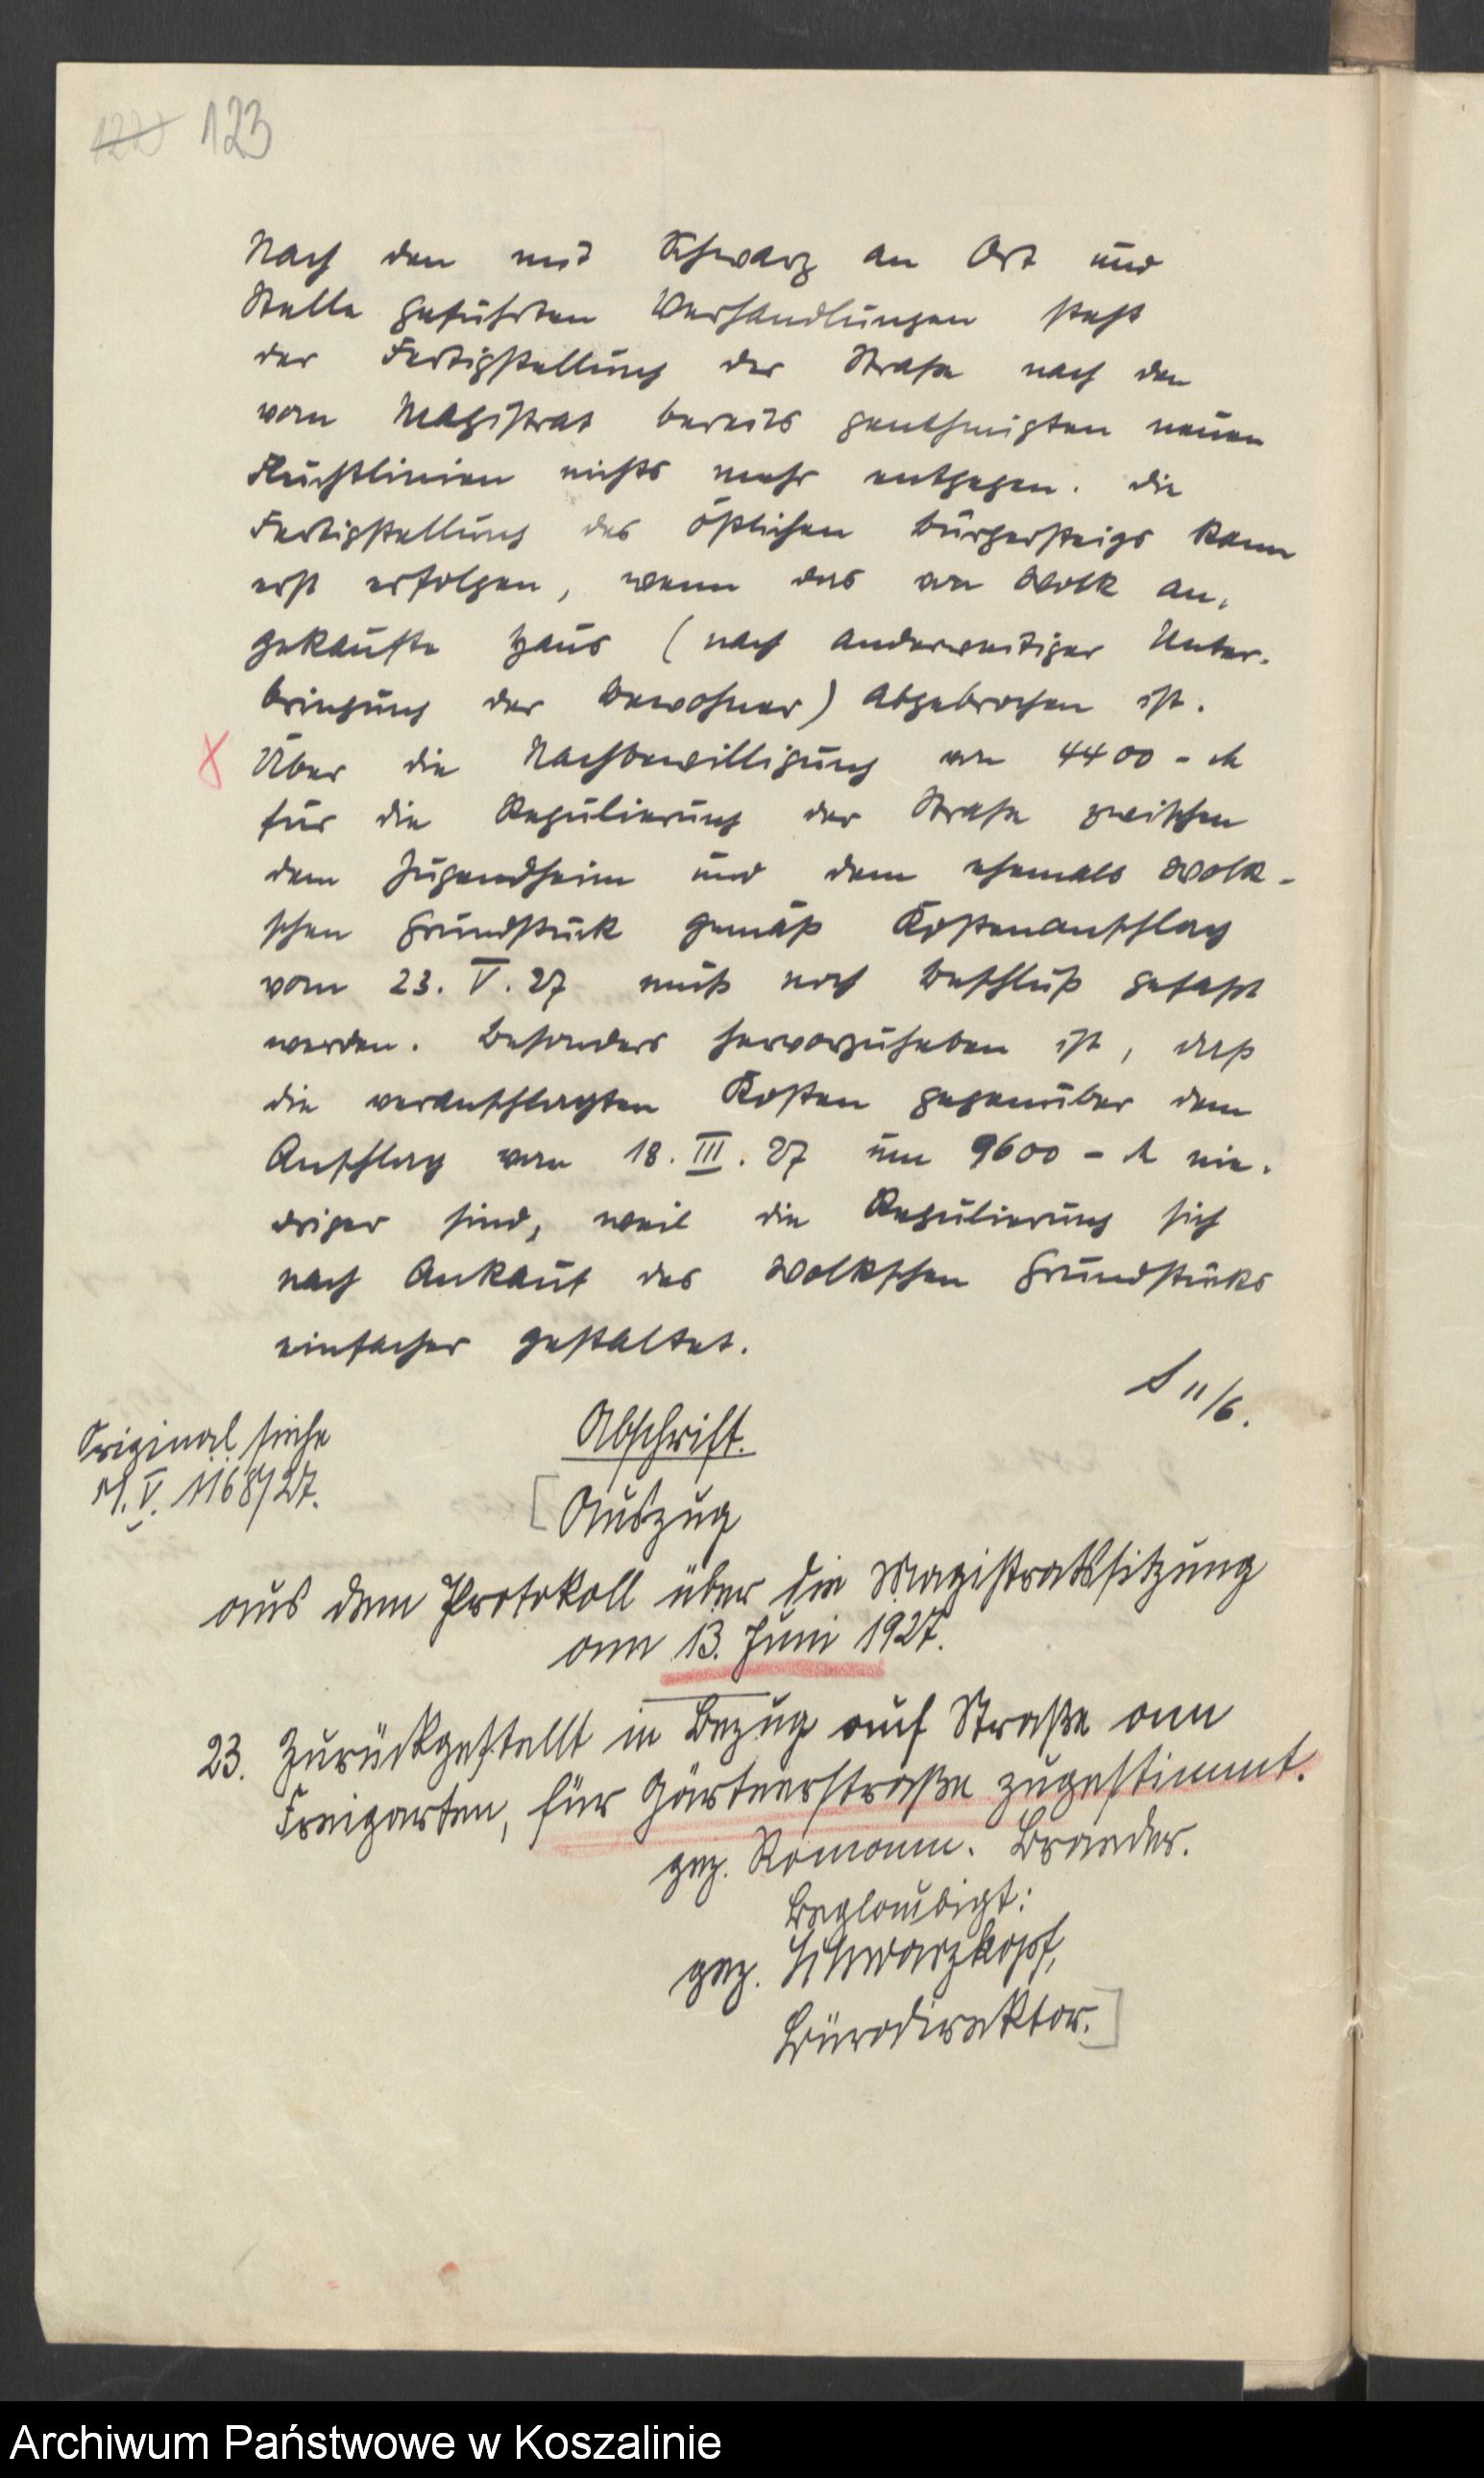 123
Nach den mit Schwarz an Ort und
Stelle geführten Verhandlungen steht
der Fertigstellung der Straße nach den
vom Magistrat bereits genehmigten neuen
Fluchtlinien nichts mehr entgegen. Die
Fertigstellung des östlichen Bürgersteigs kann
erst erfolgen, wenn das von Wolk an-
gekaufte Haus (nach anderweitiger Unter-
bringung der Bewohner) abgebrochen ist.
Über die Nachbewilligung von 4400 - M
für die Regulierung der Straße zwischen
dem Jugendheim und dem ehemals Wolk-
schen Grundstück gemäß Kostenanschlag
vom 23. V. 27 muß noch Beschluß gefaßt
werden. Besonders hervorzuheben ist, daß
die veranschlagten Kosten gegenüber dem
Anschlag vom 18. III. 27 um 9600 - M nie-
driger sind, weil die Regulierung sich
nach Ankauf des Wolkschen Grundstücks
einfacher gestaltet.
11/6.
Original siehe
V. 1168/27.
Abschrift.
[Auszug
aus dem Protokoll über die Magistratssitzung
am 13. Juni 1927.
23. Zurückgestellt in Bezug auf Straße am
Freigarten, für Gärtnerstraße zugestimmt.
gez. Romann. Braeder.
Beglaubigt:
gez. Schwarzkopf,
Bürodirektor.]
Archiwum Państwowe w Koszalinie